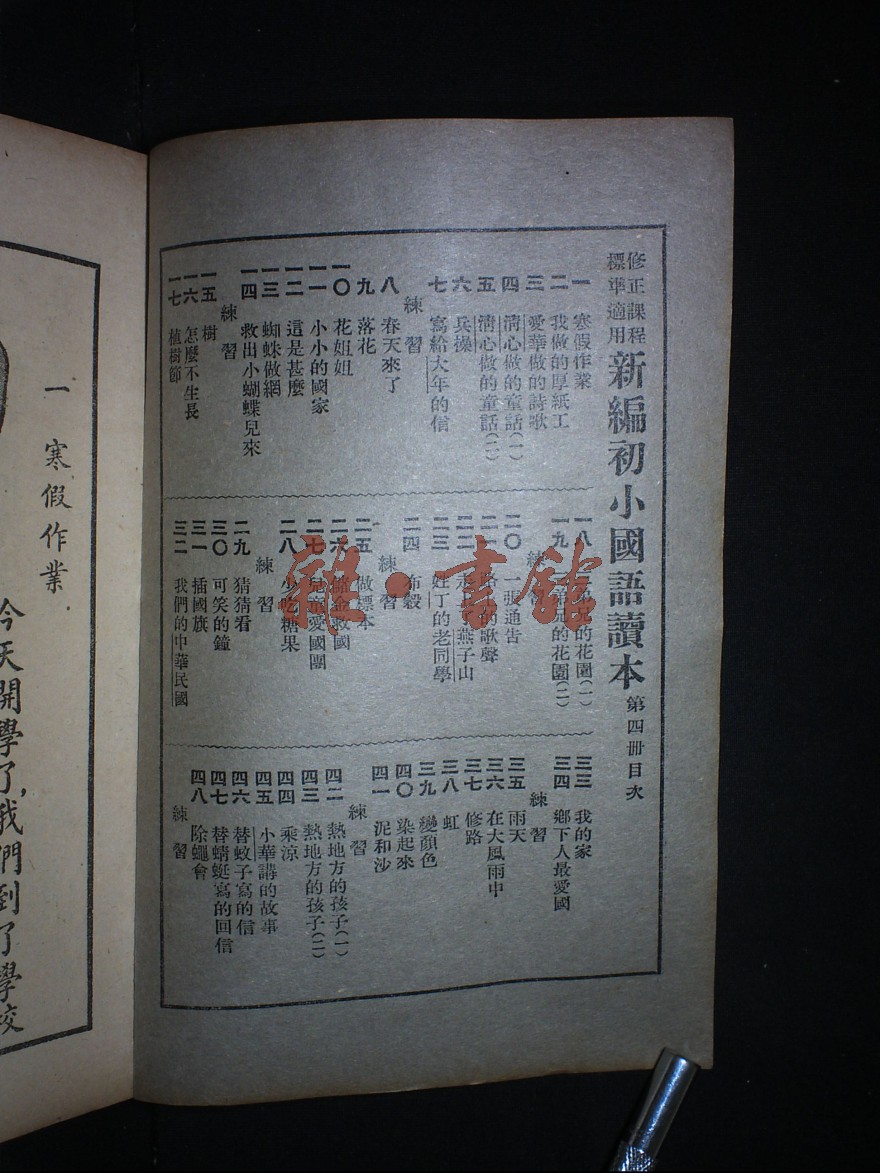 修正課程
標準適用
新編初小國語讀本 第四冊目次
一 寒假作業
二 我做的厚紙工
三 愛華做的詩歌
四 清心做的童話(一)
五 清心做的童話(二)
六 兵操
七 寫給大年的信
練習
八 春天來了
九 落花
一〇 花姐姐
一一 小小的國家
一二 這是甚麼
一三 蜘蛛做網
一四 救出小蝴蝶兒來
練習
一五 樹
一六 怎麼不生長
一七 植樹節
一八 弟兄的花園(一)
一九 弟兄的花園(二)
練習
二〇 一張通告
二一 路的歌聲
二二 燕子山
二三 姓丁的老同學
二四 布穀
練習
二五 做標本
二六 儲金救國
二七 兒童愛國團
二八 少吃糖果
練習
二九 猜猜看
三〇 可笑的鐘
三一 插國旗
三二 我們的中華民國
三三 我的家
三四 鄉下人最愛國
練習
三五 雨天
三六 在大風雨中
三七 修路
三八 虹
三九 變顏色
四〇 染起來
四一 泥和沙
練習
四二 熱地方的孩子(一)
四三 熱地方的孩子(二)
四四 乘涼
四五 小華講的故事
四六 替蚊子寫的信
四七 替蜻蜓寫的回信
四八 除蠅會
練習
一 寒假作業
今天開學了,我們到了學校
書館